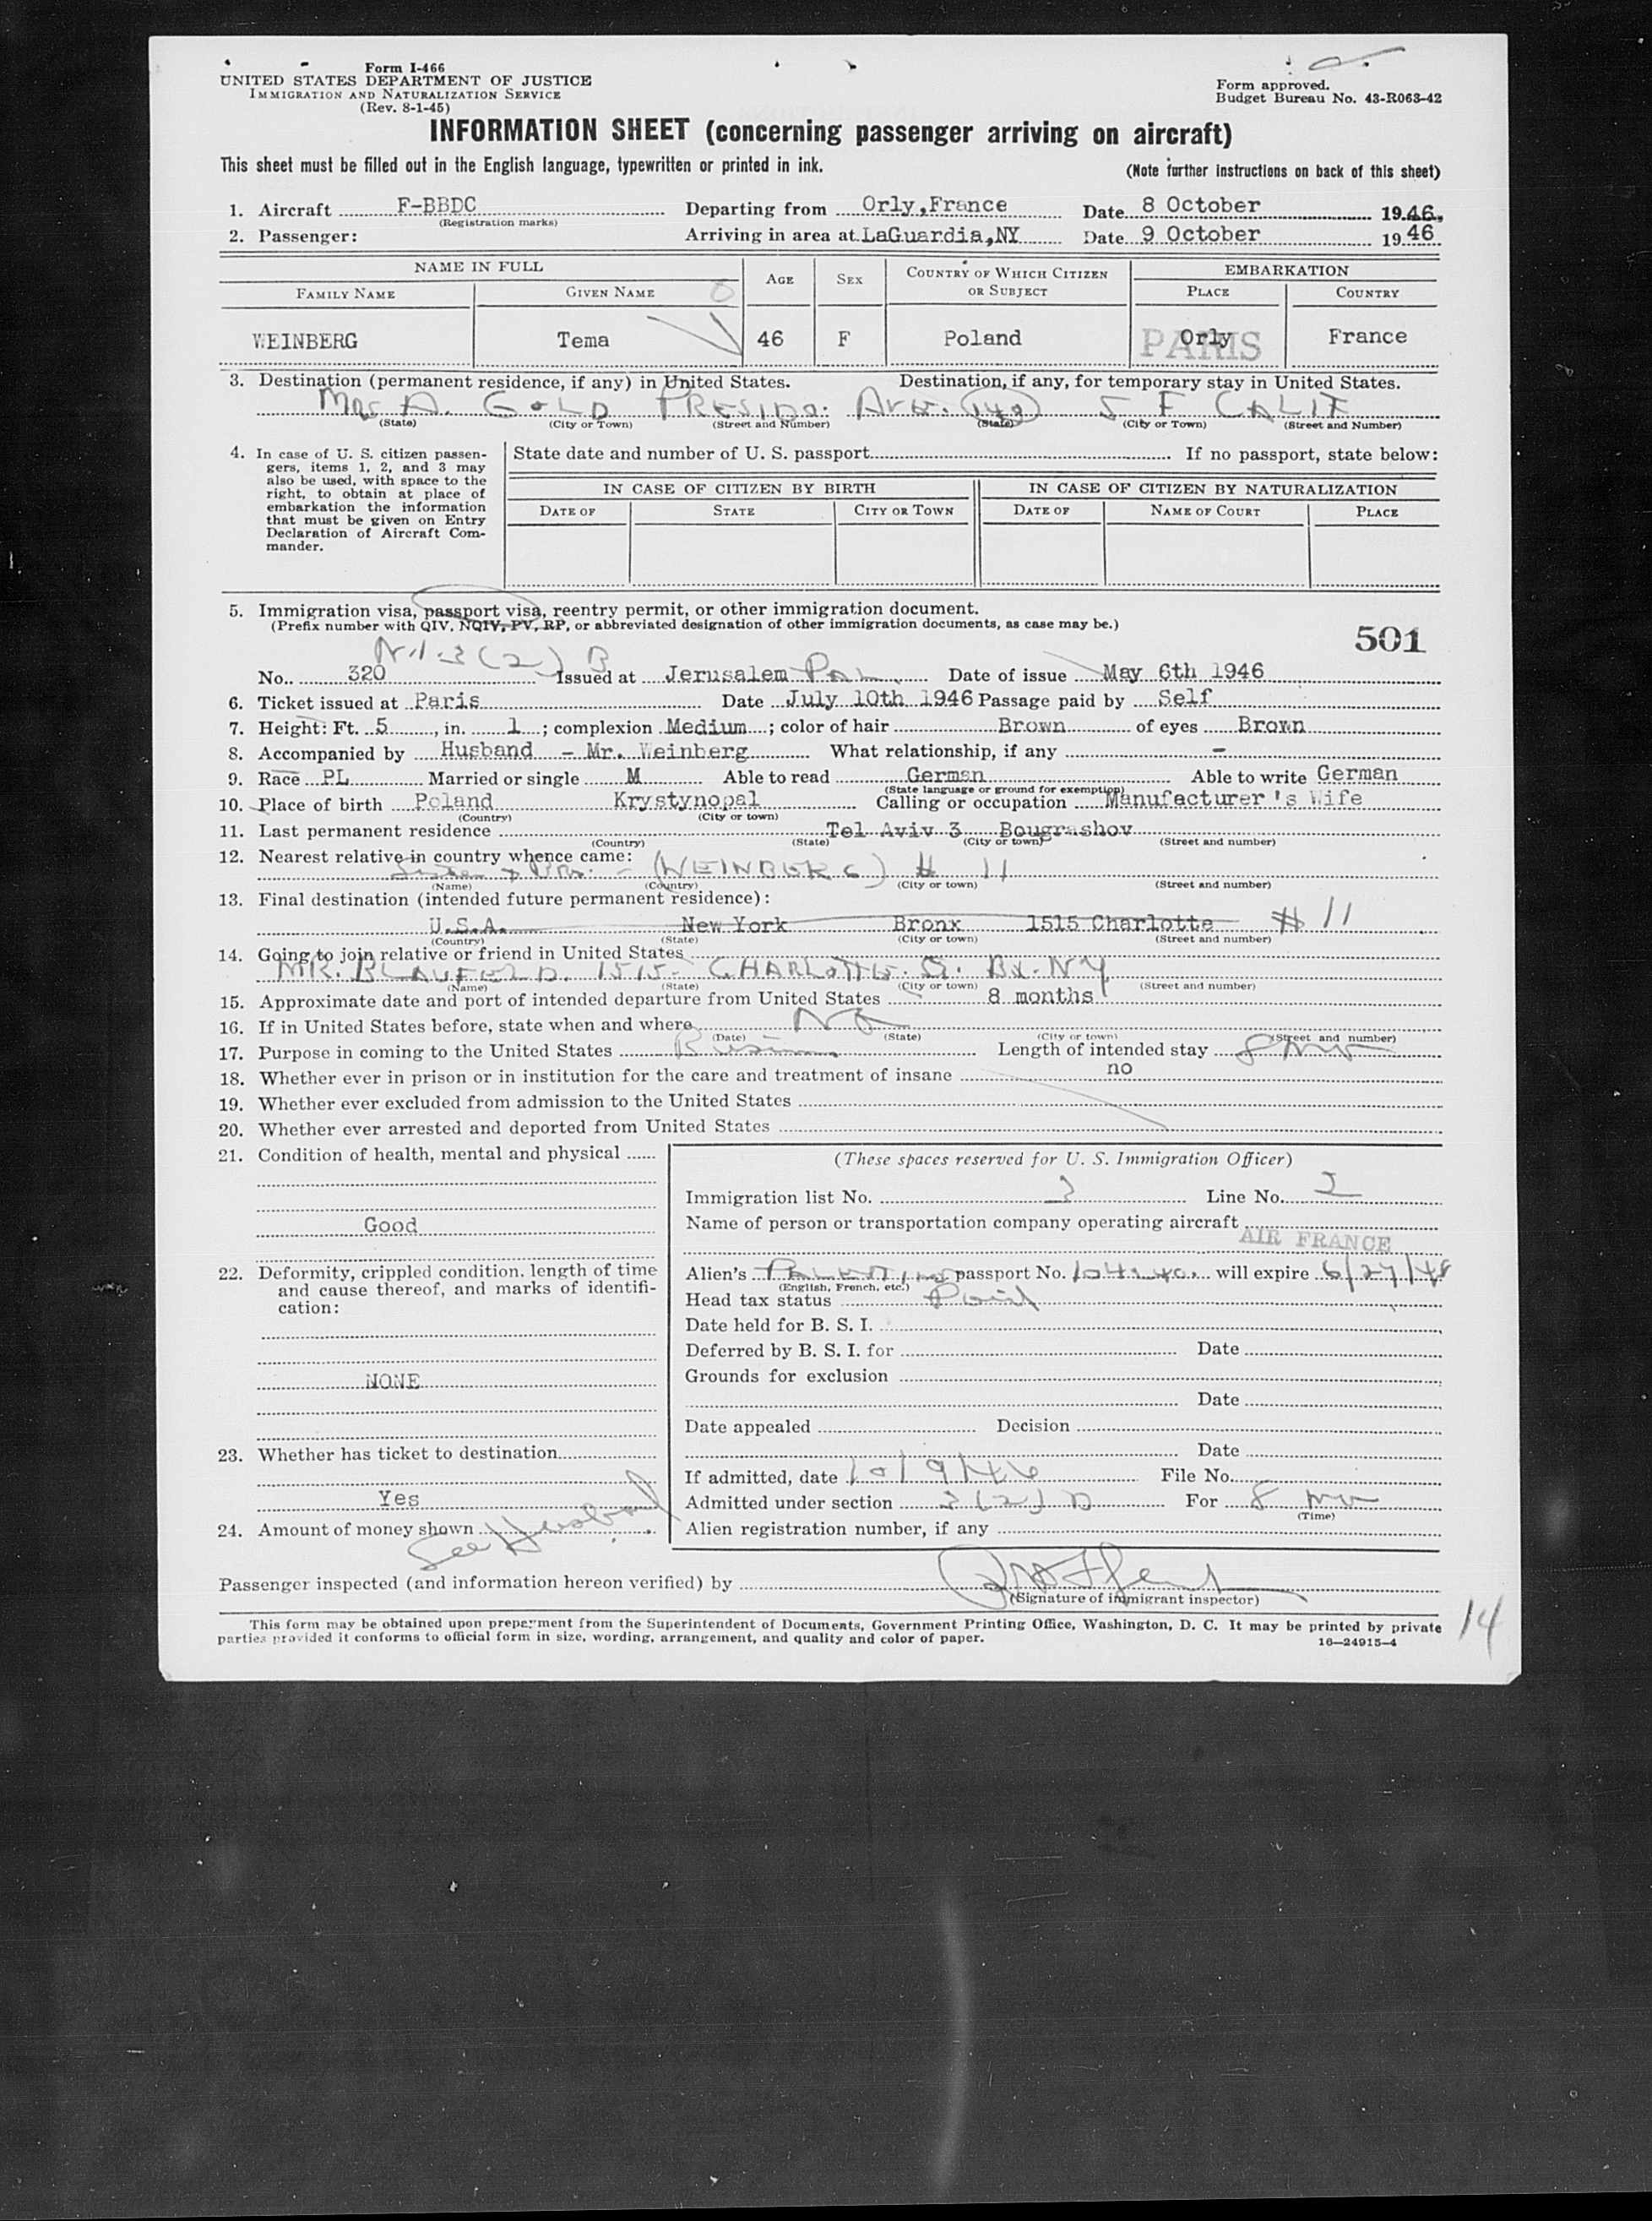 Form I-466
UNITED STATES DEPARTMENT OF JUSTICE
IMMIGRATION AND NATURALIZATION SERVICE
(Rev. 8-1-45)
Form approved.
Budget Bureau No. 43-R063-42
INFORMATION SHEET (concerning passenger arriving on aircraft)
This sheet must be filled out in the English language, typewritten or printed in ink. (Note further instructions on back of this sheet)
1. Aircraft F-BBDC Departing from Orly,France Date 8 October 1946.
(Registration marks)
2. Passenger: Arriving in area at LaGuardia,NY Date 9 October 1946
NAME IN FULL AGE SEX COUNTRY OF WHICH CITIZEN OR SUBJECT EMBARKATION
FAMILY NAME GIVEN NAME PLACE COUNTRY
WEINBERG Tema 46 F Poland PARIS Orly France
3. Destination (permanent residence, if any) in United States. Destination, if any, for temporary stay in United States.
Mrs A. GOLD PRESIDO. AVE. (149) S F CALIF
(State) (City or Town) (Street and Number) (State) (City or Town) (Street and Number)
4. In case of U. S. citizen passengers, items 1, 2, and 3 may also be used, with space to the right, to obtain at place of embarkation the information that must be given on Entry Declaration of Aircraft Commander.
State date and number of U. S. passport If no passport, state below:
IN CASE OF CITIZEN BY BIRTH IN CASE OF CITIZEN BY NATURALIZATION
DATE OF STATE CITY OR TOWN DATE OF NAME OF COURT PLACE
5. Immigration visa, passport visa, reentry permit, or other immigration document.
(Prefix number with QIV, NQIV, PV, RP, or abbreviated designation of other immigration documents, as case may be.)
501
3(2) B
No. 320 Issued at Jerusalem Pal Date of issue May 6th 1946
6. Ticket issued at Paris Date July 10th 1946 Passage paid by Self
7. Height: Ft. 5, in. 1; complexion Medium; color of hair Brown of eyes Brown
8. Accompanied by Husband - Mr. Weinberg What relationship, if any -
9. Race PL Married or single M Able to read German Able to write German
(State language or ground for exemption)
10. Place of birth Poland Krystynopal Calling or occupation Manufacturer's Wife
(Country) (City or town)
11. Last permanent residence Tel Aviv 3 Bougrashov
(Country) (State) (City or town) (Street and number)
12. Nearest relative in country whence came: (WEINBERG) # 11
(Name) (Country) (City or town) (Street and number)
13. Final destination (intended future permanent residence):
U.S.A. New York Bronx 1515 Charlotte # 11
(Country) (State) (City or town) (Street and number)
14. Going to join relative or friend in United States
MR. BLAUFELD. 1515- CHARLOTTE. S. BX. NY
(Name) (State) (City or town) (Street and number)
15. Approximate date and port of intended departure from United States 8 months
16. If in United States before, state when and where No
(Date) (State) (City or town) (Street and number)
17. Purpose in coming to the United States Length of intended stay 8 mos
18. Whether ever in prison or in institution for the care and treatment of insane no
19. Whether ever excluded from admission to the United States
20. Whether ever arrested and deported from United States
21. Condition of health, mental and physical
Good
22. Deformity, crippled condition, length of time and cause thereof, and marks of identification:
NONE
23. Whether has ticket to destination
Yes
24. Amount of money shown See Husband
(These spaces reserved for U. S. Immigration Officer)
Immigration list No. 3 Line No. 2
Name of person or transportation company operating aircraft
AIR FRANCE
Alien's Palestine passport No. will expire 6/27/48
(English, French, etc.)
Head tax status Paid
Date held for B. S. I.
Deferred by B. S. I. for Date
Grounds for exclusion
Date
Date appealed Decision
Date
If admitted, date 10/9/46 File No.
Admitted under section 3(2) B For 8 mos
(Time)
Alien registration number, if any
Passenger inspected (and information hereon verified) by
(Signature of immigrant inspector)
This form may be obtained upon prepayment from the Superintendent of Documents, Government Printing Office, Washington, D. C. It may be printed by private
parties provided it conforms to official form in size, wording, arrangement, and quality and color of paper. 16—24915-4
14